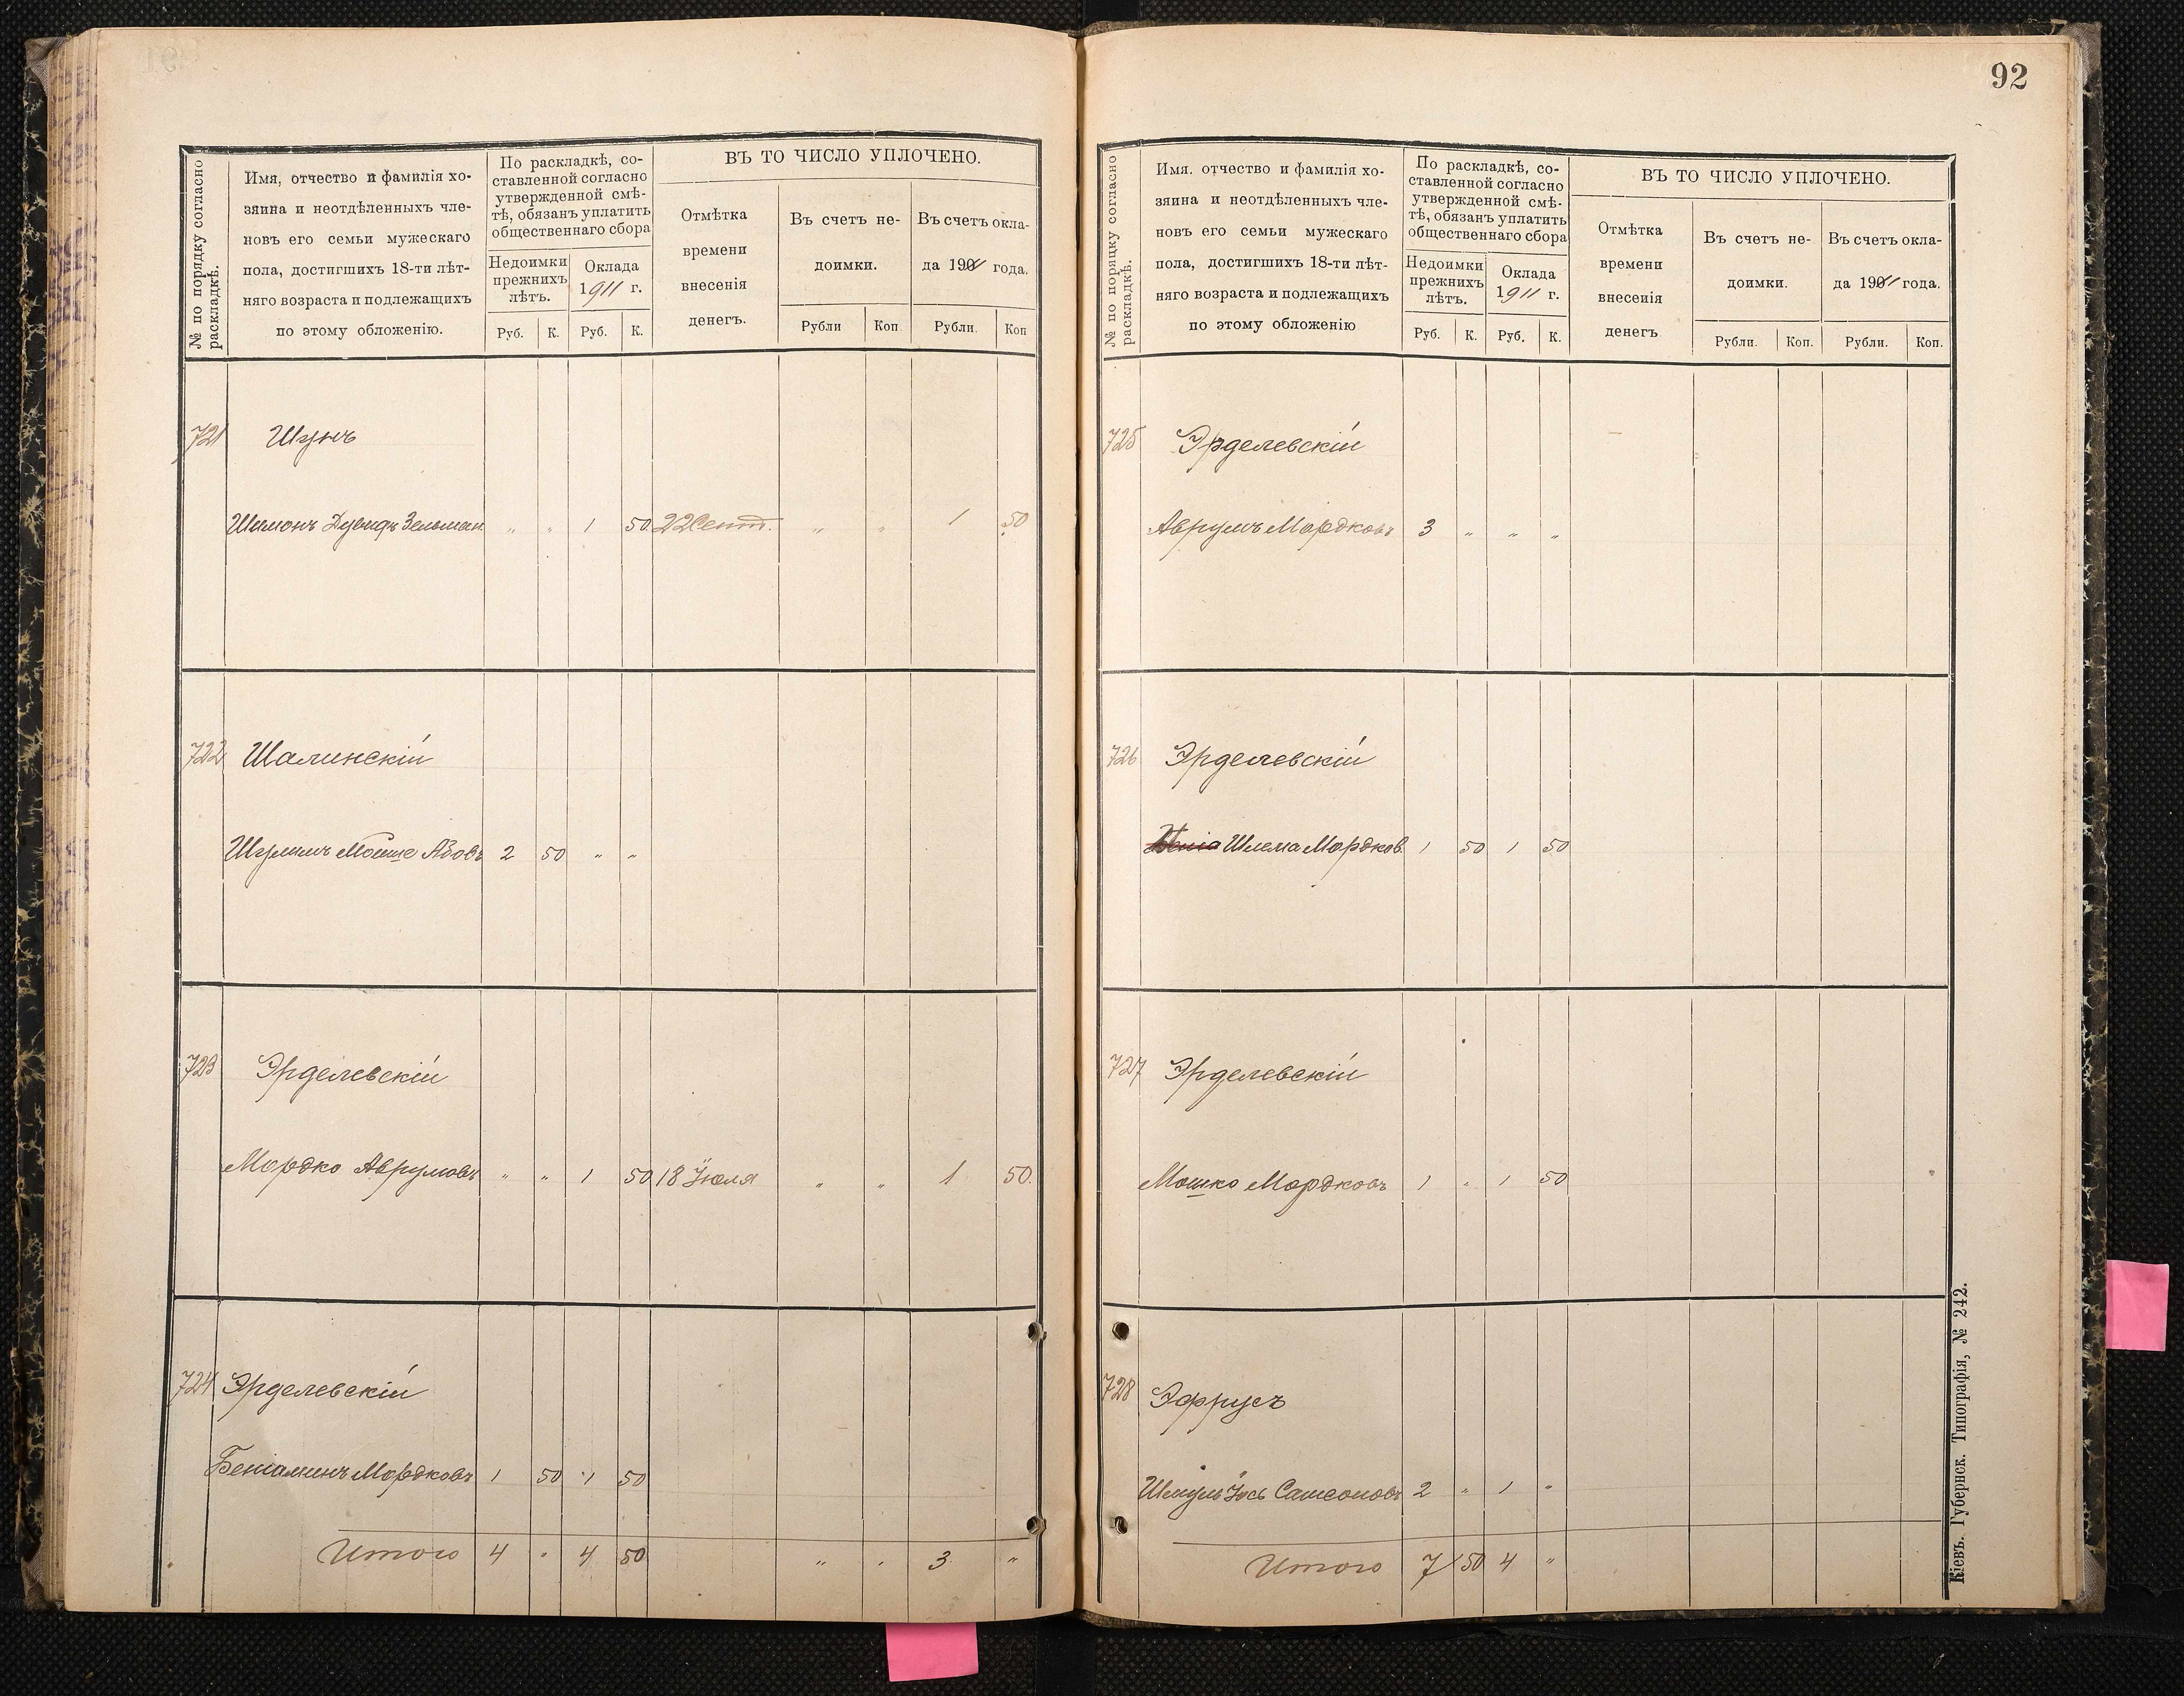 92
№ по порядку согласно
раскладкѣ.
Имя, отчество и фамилія хо-
зяина и неотдѣленныхъ чле-
новъ его семьи мужескаго
пола, достигшихъ 18-ти лѣт-
няго возраста и подлежащихъ
по этому обложенію.
По раскладкѣ, со-
ставленной согласно
утвержденной смѣ-
тѣ, обязанъ уплатить
общественнаго сбора
Недоимки
прежнихъ
лѣтъ.
Оклада
1911 г.
Руб. К. Руб. К.
ВЪ ТО ЧИСЛО УПЛОЧЕНО.
Отмѣтка
времени
внесенія
денегъ.
Въ счетъ не-
доимки.
Въ счетъ окла-
да 1911 года.
Рубли Коп. Рубли. Коп
721 Шунъ
Шимонъ Дувидъ Зельман. " " 1 50 22 Сент. " " 1 50
722 Шалинскій
Шулимъ Мошко Абовъ 2 50 " "
723 Эрделевскій
Мордко Аврумовъ " " 1 50 18 Іюля " " 1 50.
724 Эрделевскій
Беніаминъ Мордковъ 1 50 1 50
Итого 4 " 4 50 " " 3 "
№ по поряцку согласно
раскладкѣ.
Имя. отчество и фамилія хо-
зяина и неотдѣленныхъ чле-
новъ его семьи мужескаго
пола, достигшихъ 18-ти лѣт-
няго возраста и подлежащихъ
по этому обложенію
По раскладкѣ, со-
ставленной согласно
утвержденной смѣ-
тѣ, обязанъ уплатить
общественнаго сбора
Недоимки
прежнихъ
лѣтъ.
Оклада
1911 г.
Руб. К. Руб. К.
ВЪ ТО ЧИСЛО УПЛОЧЕНО.
Отмѣтка
времени
внесенія
денегъ
Въ счетъ не-
доимки.
Въ счетъ окла-
да 1911 года.
Рубли. Коп. Рубли. Коп.
725 Эрделевскій
Аврумъ Мордковъ 3 " " "
726 Эрделевскій
Шлема Мордков. 1 50 1 50
727 Эрделевскій
Мошко Мордковъ 1 " 1 50
728 Эфрусъ
Шмуль Іось Самсоновъ 2 " 1 "
Итого 7 50 4 "
Кіевъ. Губернск. Типографія, № 242.